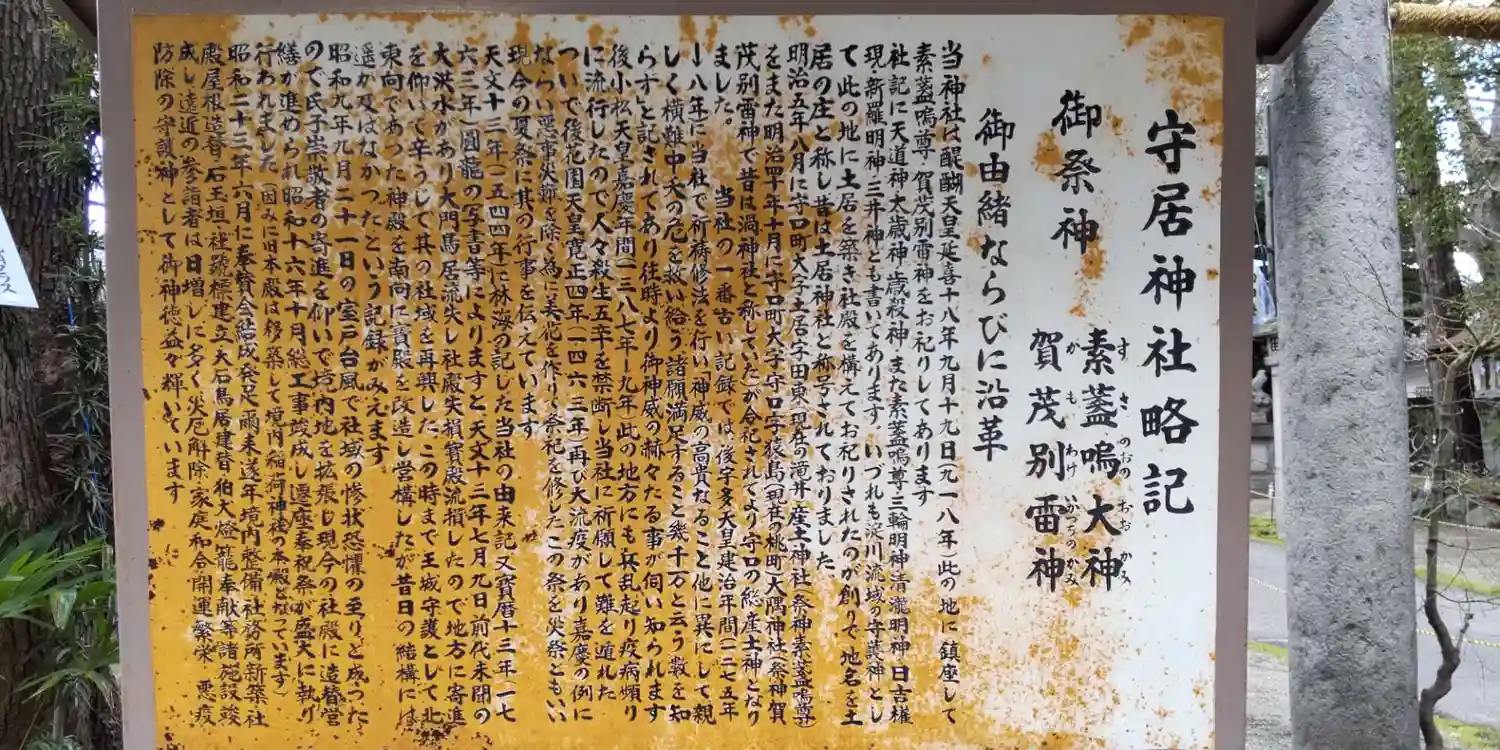 守居神社略記
御祭神
素蓋嗚大神
すさのおのおおかみ
賀茂別雷神
かもわけがつちのかみ
御由緒ならびに沿革
当神社は醍醐天皇延喜十八年九月十九日(九一八年)此の地に鎮座して
素蓋嗚尊 賀茂別雷神をお祀りしてあります
社記に天道神大歳神歳殺神 また素蓋嗚尊三輪明神清瀧明神 日吉権
現新羅明神 三井神とも書いてあります。いづれも淀川流域の守護神とし
て此の地に土居を築き社殿を構えてお祀りされたのが創りで、地名を土
居の庄と称し昔は土居神社と称号されておりました
明治五年八月に守口町大字土居字田東(現在の滝井)産土神社(祭神素蓋嗚尊)
をまた明治四十年十月に守口町大字守口字猿島(現在の桃町)大隅神社(祭神賀
茂別雷神で昔は渦神社と称していた)が合祀されてより守口の総産土神となり
ました。 当社の一番古い記録では、後宇多天皇建治年間(一二七五年
―八年)に当社で祈祷修法を行い「神威の高貴なること他に異にして親
しく横難中夭の厄を救い給う諸願満足すること幾千万と云う数を知
らず」と記されてあり往時より御神威の赫々たる事が伺い知られます
後小松天皇嘉慶年間(一三八七年―九年)此の地方にも兵乱起り疫病頻り
に流行したので人々殺生五辛を禁断し当社に祈願して難を遁れた
ついで後花園天皇寛正四年(一四六三年)再び大流疫があり嘉慶の例に
ならい悪事災難を除く為に美花を作り祭祀を修したこの祭を火祭ともい
現今の夏祭に其の行事を伝えています
天文十三年(一五四四年)に林海の記した当社の由来記又宝暦十三年(一七
六三年)圓龍の写書等によりますと天文十三年七月九日前代未聞の
大洪水があり大門馬居流失し社殿失損宝殿流損したので地方に寄進
を仰いで卒うじて其の社域を再興した この時まで王城守護として北
東向であった神殿を南向に宝殿を改造し営構したが昔日の結構には
遥か及ばなかったという記録がみえます。
昭和九年九月二十一日の室戸台風で社域の惨状恐懼の至りと成った
ので氏子崇敬者の寄進を仰いで境内地を拡張し現今の社殿に造替営
繕が進められ昭和十六年十月総工事竣成し遷座奉祝祭が盛大に執り
行あれました(因みに旧本殿は移築して境内稲荷神社の本殿と成っています)
昭和二十三年六月に奉賛会結成発足 爾来逐年境内整備 社務所新築 社
殿屋根造替 石玉垣 社號標建立 大石鳥居建替 狛犬燈籠奉献等諸施設竣
成し遠近の参詣者は日増しに多く災厄解除 家庭和合 開運繁栄 悪疫
防除の守護神として御神徳益々輝いています